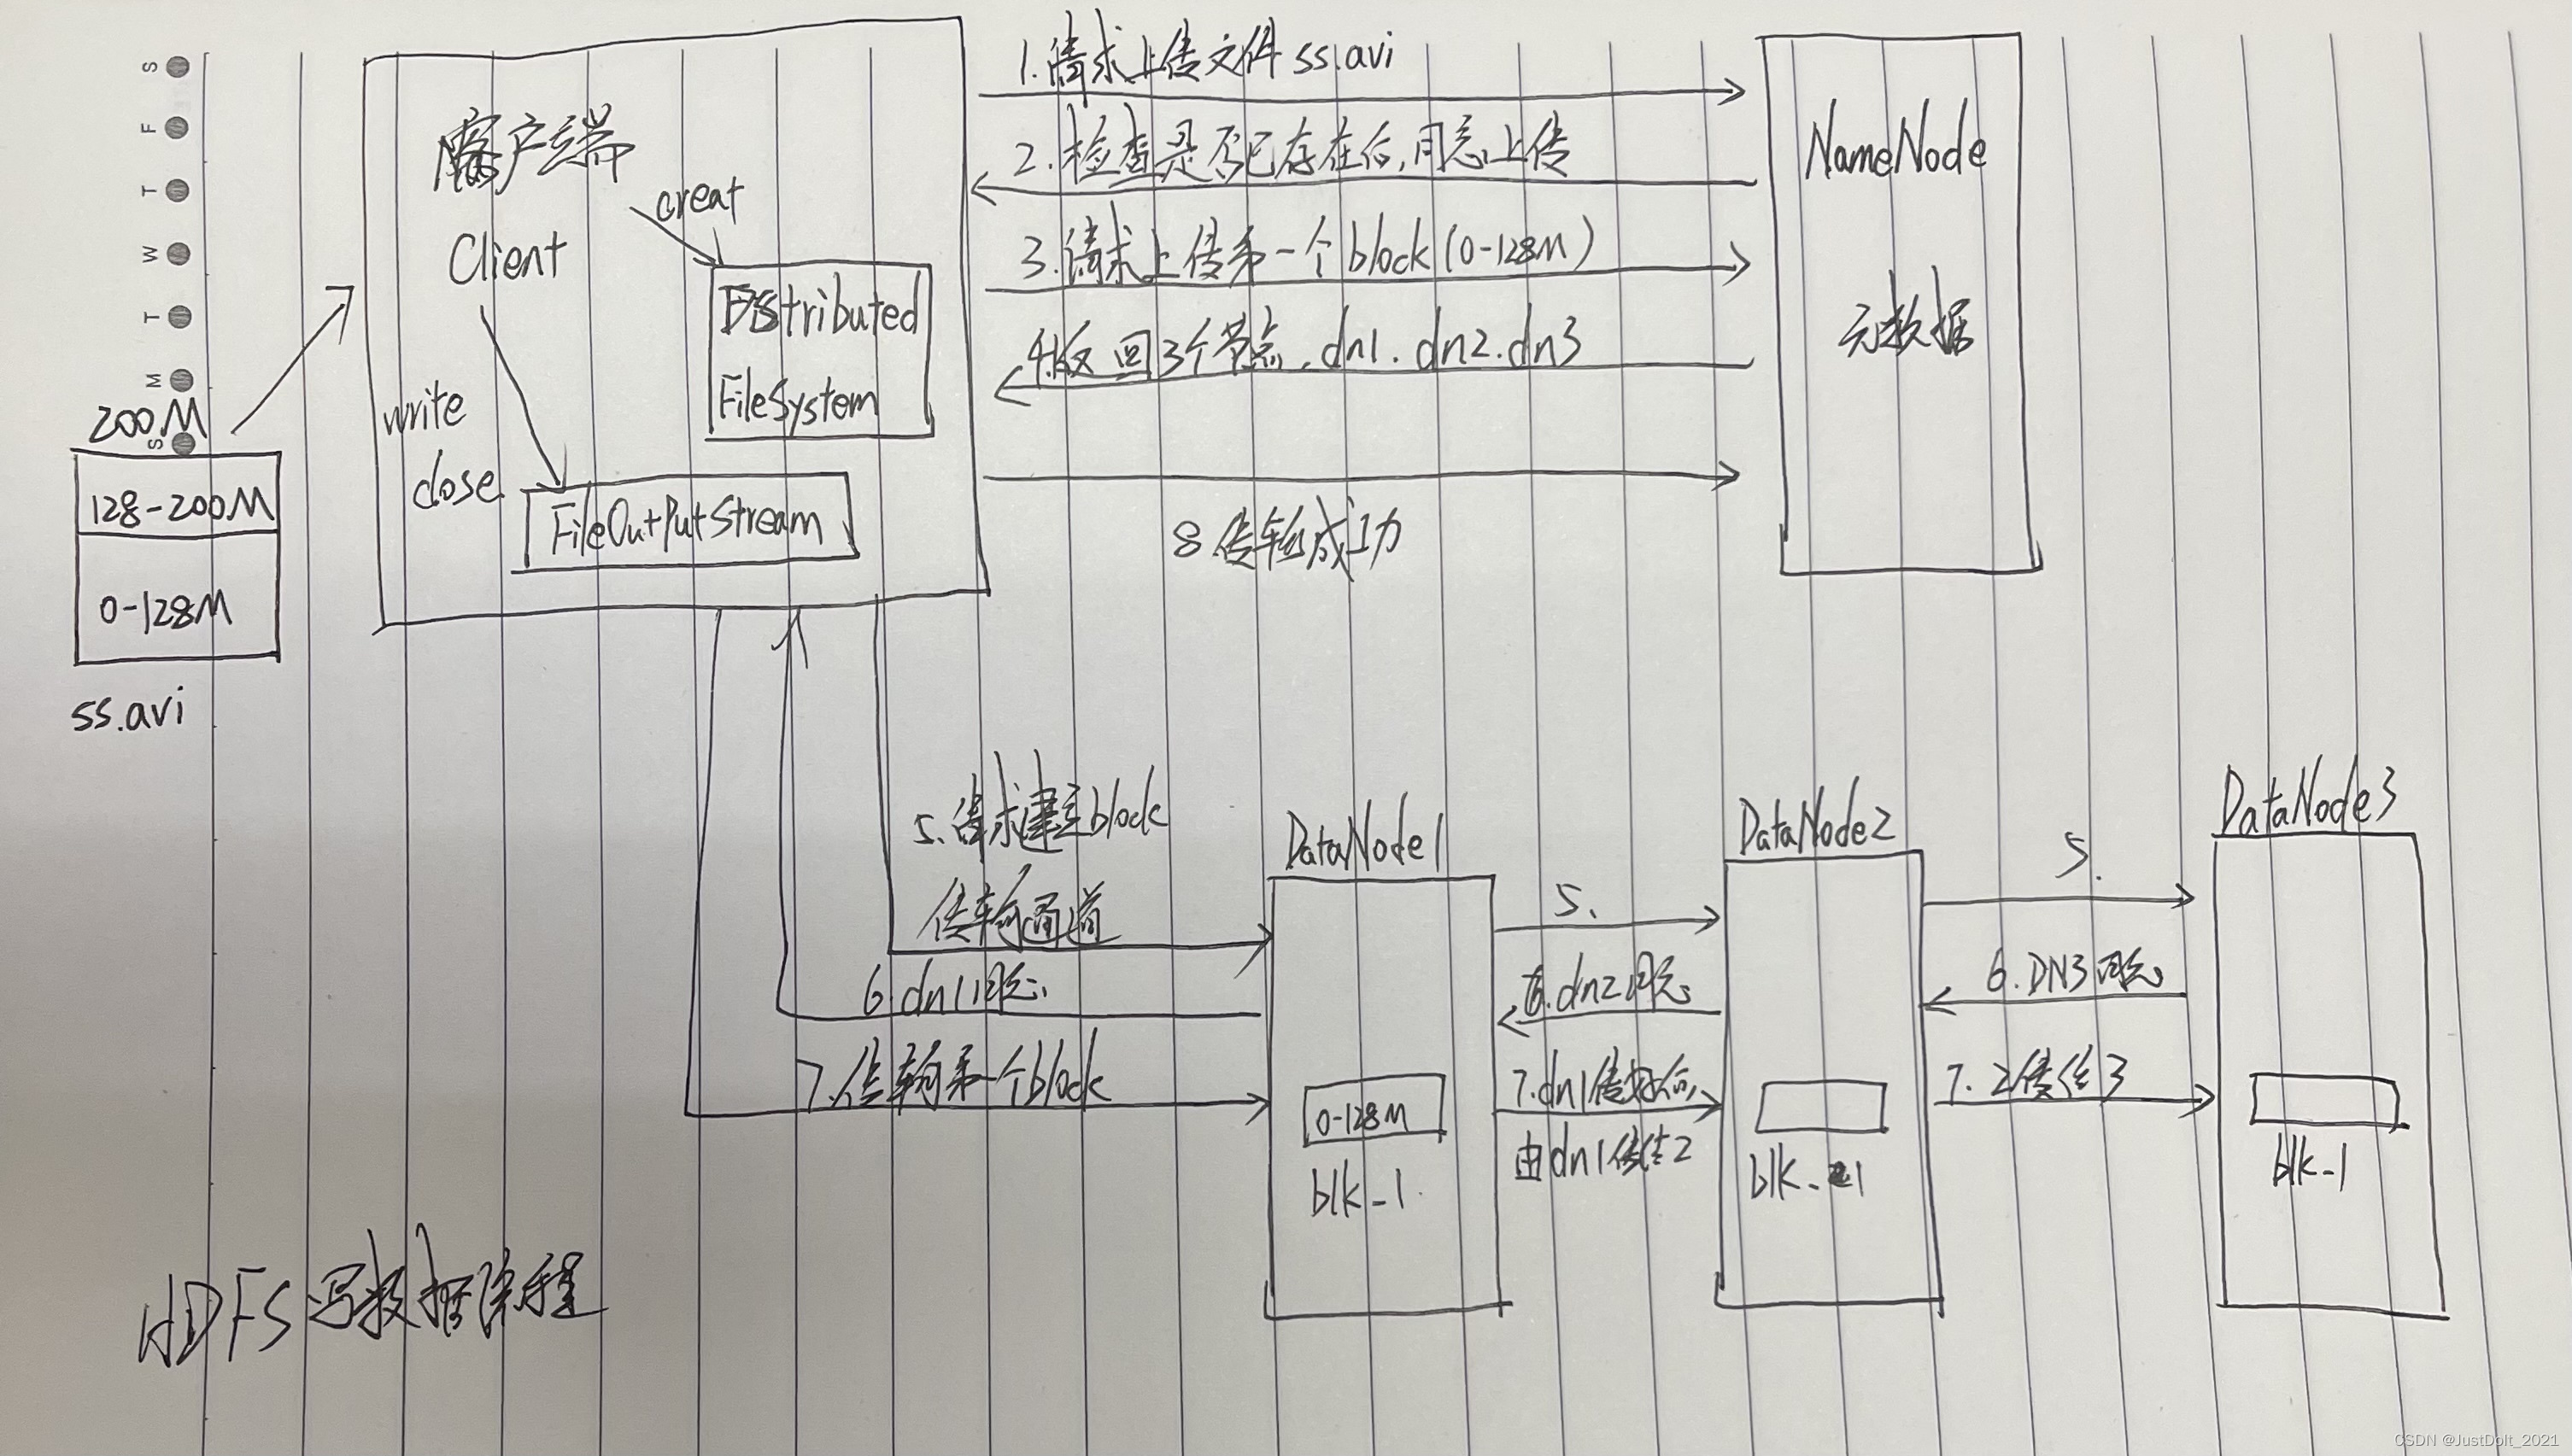 S
F
T
W
T
M
S
200M
128-200M
0-128M
ss.avi
客户端
Client
creat
Distributed
FileSystem
write
close
FileOutPutStream
1.请求上传文件ss.avi
2.检查是否已存在后,同意上传
3.请求上传第一个block(0-128M)
4.返回3个节点,dn1.dn2.dn3
8.传输成功
NameNode
元数据
5.请求建立block
传输通道
6.dn1同意
7.传输第一个block
DataNode1
0-128M
blk_1
5.
6.dn2同意
7.dn1传好后,
由dn1传给2
DataNode2
blk_1
5.
6.DN3同意
7.2传给3
DataNode3
blk_1
HDFS写数据流程
CSDN @JustDoIt_2021